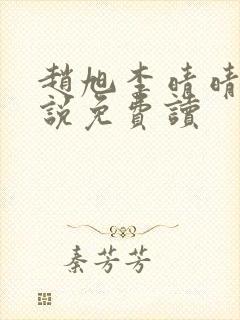 趙旭李晴晴
說免費讀
秦芳芳